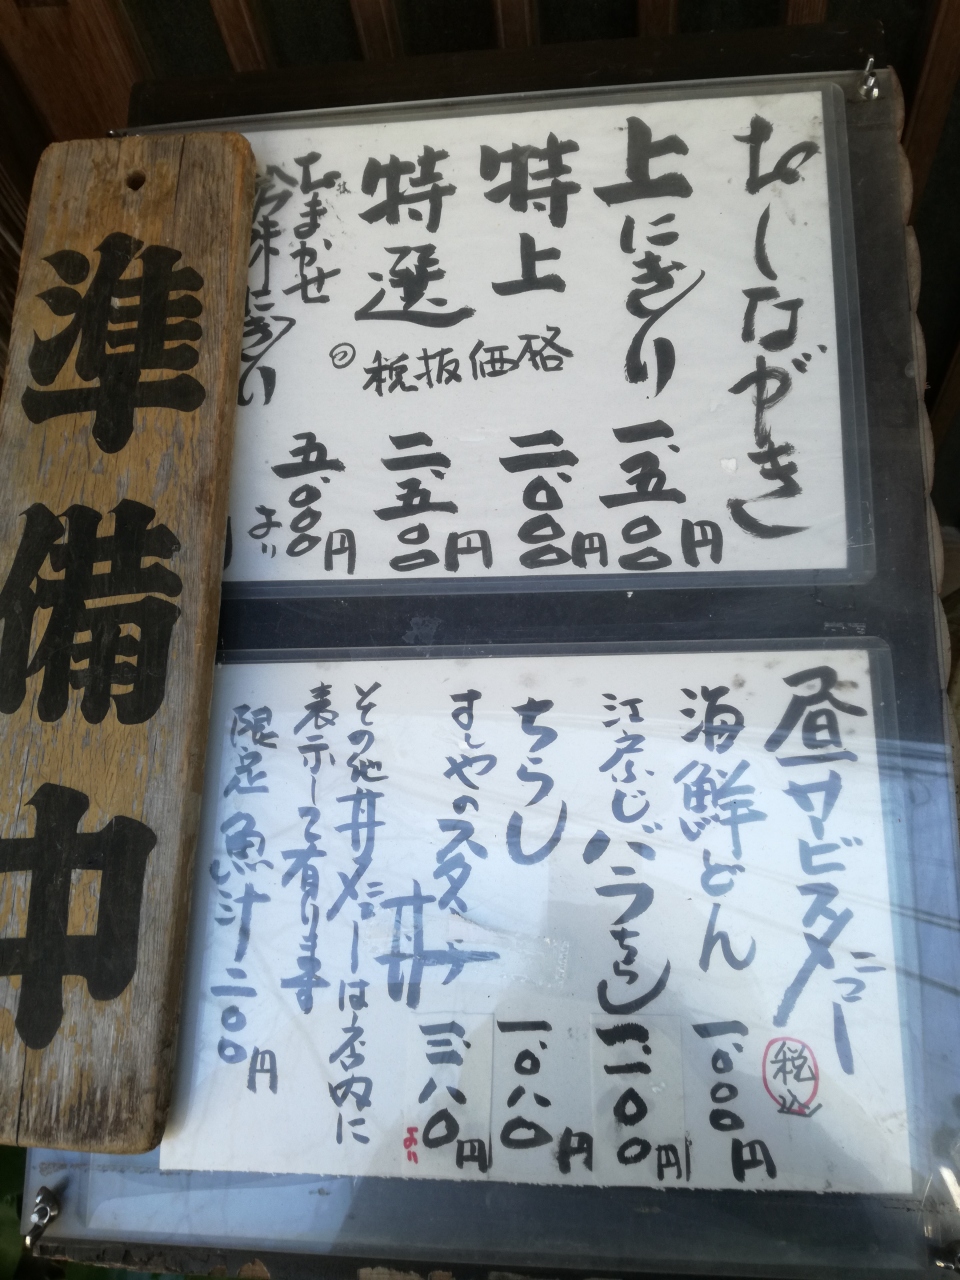 おしながき
上にぎり 一、五〇〇円
特上 二、〇〇〇円
特選 二、五〇〇円
◎税抜価格
おまかせ
吟味にぎり
五、〇〇〇円
より
昼サビスメニュー 税込
海鮮どん 一、〇〇〇円
江戸ふじバラちらし 一、一〇〇円
ちらし 一、〇八〇円
すしやのスタミナ丼 八〇円
より
その他丼メニューは店内に
表示して有ります
限定魚汁二〇〇円
準備中